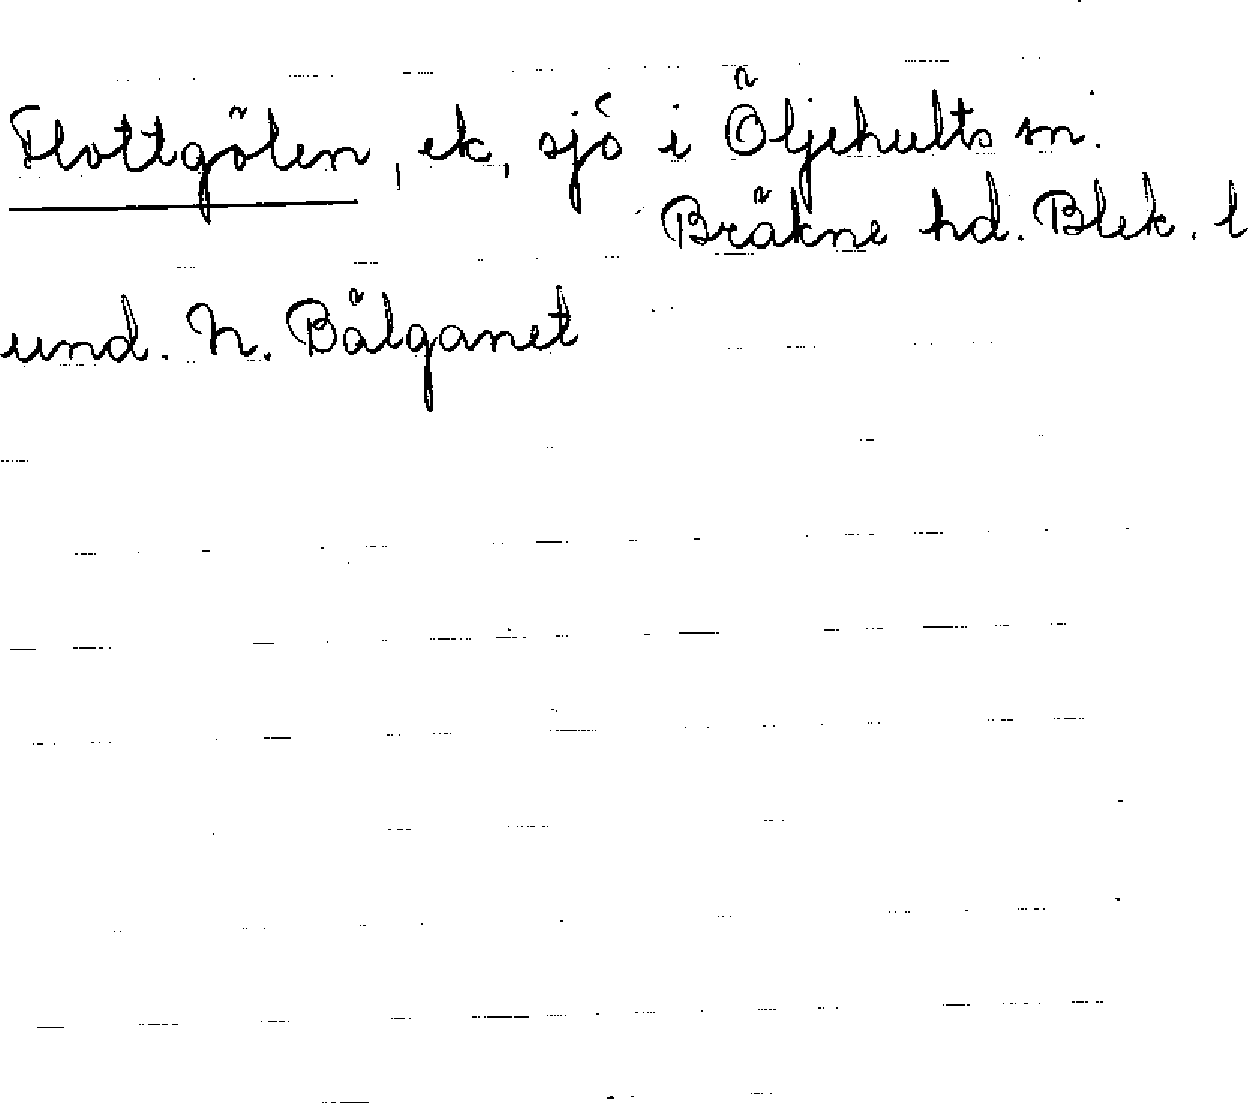 Flottgölen, ek, sjö i Öljehults sn.
Bräkne hd. Blek. l
und. N. Bälganet